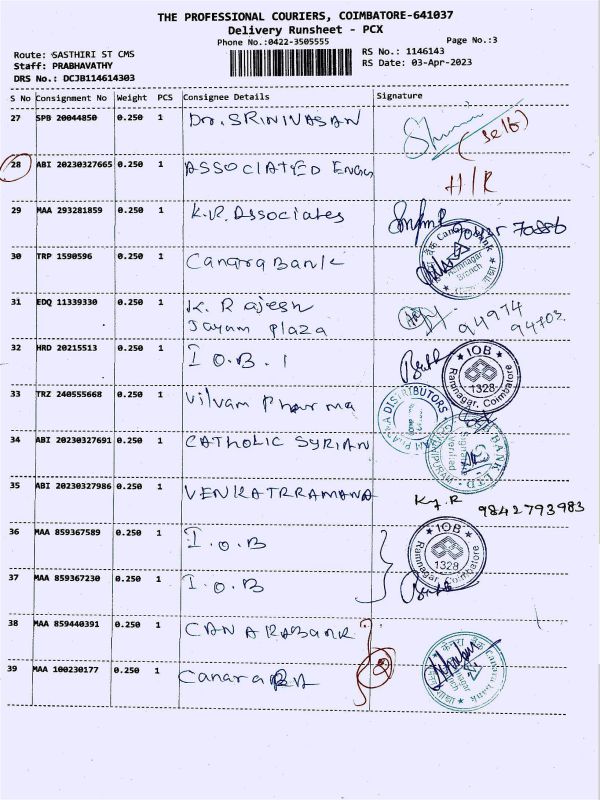 THE PROFESSIONAL COURIERS, COIMBATORE-641037
Delivery Runsheet - PCX
Phone No.:0422-3505555
Page No.:3
Route: SASTHIRI ST CMS
RS No.: 1146143
Staff: PRABHAVATHY
RS Date: 03-Apr-2023
DRS No.: DCJB114614303
S No Consignment No Weight PCS Consignee Details Signature
27 SPB 20044850 0.250 1 Dr. SRINIVASAN
(self)
28 ABI 20230327665 0.250 1 ASSOCIATED ENGG
H/R
29 MAA 293281859 0.250 1 K.R. Associates
30 TRP 1590596 0.250 1 Canara Bank
Canara Bank
Ramnagar
Branch
31 EDQ 11339330 0.250 1 K. Rajesh
Jayam Plaza
94974
94703
32 HRD 20215513 0.250 1 I.O.B.
IOB
1328
Ramnagar, Coimbatore
33 TRZ 240555668 0.250 1 Vilvam Pharma
DISTRIBUTORS
34 ABI 20230327691 0.250 1 CATHOLIC SYRIAN
BANK LTD.
Signature
35 ABI 20230327986 0.250 1 VENKATRRAMANA
9842793983
36 MAA 859367589 0.250 1 I.O.B
IOB
1328
Ramnagar, Coimbatore
37 MAA 859367230 0.250 1 I.O.B
38 MAA 859440391 0.250 1 CANARABANK
39 MAA 100230177 0.250 1 Canara
Canara Bank